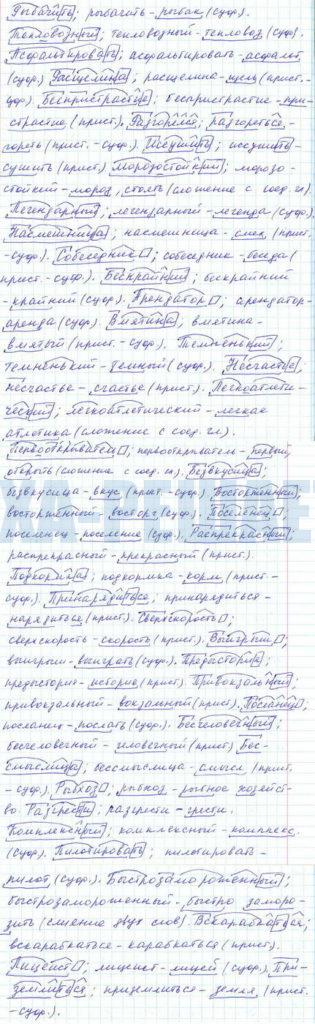 Рыбачить; рыбачить - рыбак (суф).
Тепловозный; тепловозный - тепловоз (суф).
Асфальтировать; асфальтировать - асфальт
(суф.) Расщелина, расщелина - щель (прист. -
суф.) Беспристрастие; беспристрастие - при-
страстие (прист.). Разгорелся; разгореться -
гореть (прист. - суф.). Иссушить; иссушить -
сушить (прист.) Морозостойкий; морозо-
стойкий - мороз, стоять (сложение с соед. гл).
Легендарный; легендарный - легенда (суф.)
Насмешница; насмешница - смех (прист.
- суф.). Собеседник; собеседник - беседа (
прист. - суф). Бескрайний; бескрайний
- крайний (суф.). Арендатор; арендатор -
аренда (суф). Вмятина, вмятина -
вмятый (прист. - суф). Темненький;
темненький - темный (суф). Несчастье,
несчастье - счастье (прист). Легкоатлети-
ческий; легкоатлетический - легкая
атлетика (сложение с соед. гл).
Первооткрыватель; первооткрыватель - первый,
открыть (сложение с соед. гл). Безвкусица;
безвкусица - вкус (прист. - суф.). Восторженный,
восторженный - восторг (суф.). Поселенец;
поселенец - поселение (суф), Распрекрасный;
распрекрасный - прекрасный (прист).
Подкормка; подкормка - корм, (прист. -
суф). Принарядиться; принарядиться -
нарядиться (прист). Сверхскорость;
сверхскорость - скорость (прист). Выигрыш;
выигрыш - выиграть (суф). Предыстория;
предыстория - история (прист). Привокзальный;
привокзальный - вокзальный (прист). Посланец;
посланец - послать (суф). Бесчеловечный;
бесчеловечный - человечный (прист) Бес-
смыслица; бессмыслица - смысл (прист.
- суф). Рыбхоз; рыбхоз - рыбное хозяйст-
во. Разгрести; разгрести - грести.
Комплексный; комплексный - комплекс
(суф). Пилотировать; пилотировать -
пилот (суф). Быстрозамороженный;
быстрозамороженный - быстро заморо-
зить (слияние двух слов). Вскарабкаться;
вскарабкаться - карабкаться (прист).
Лицеист; лицеист - лицей (суф). При-
землиться; приземлиться - земля, (прист.
- суф).